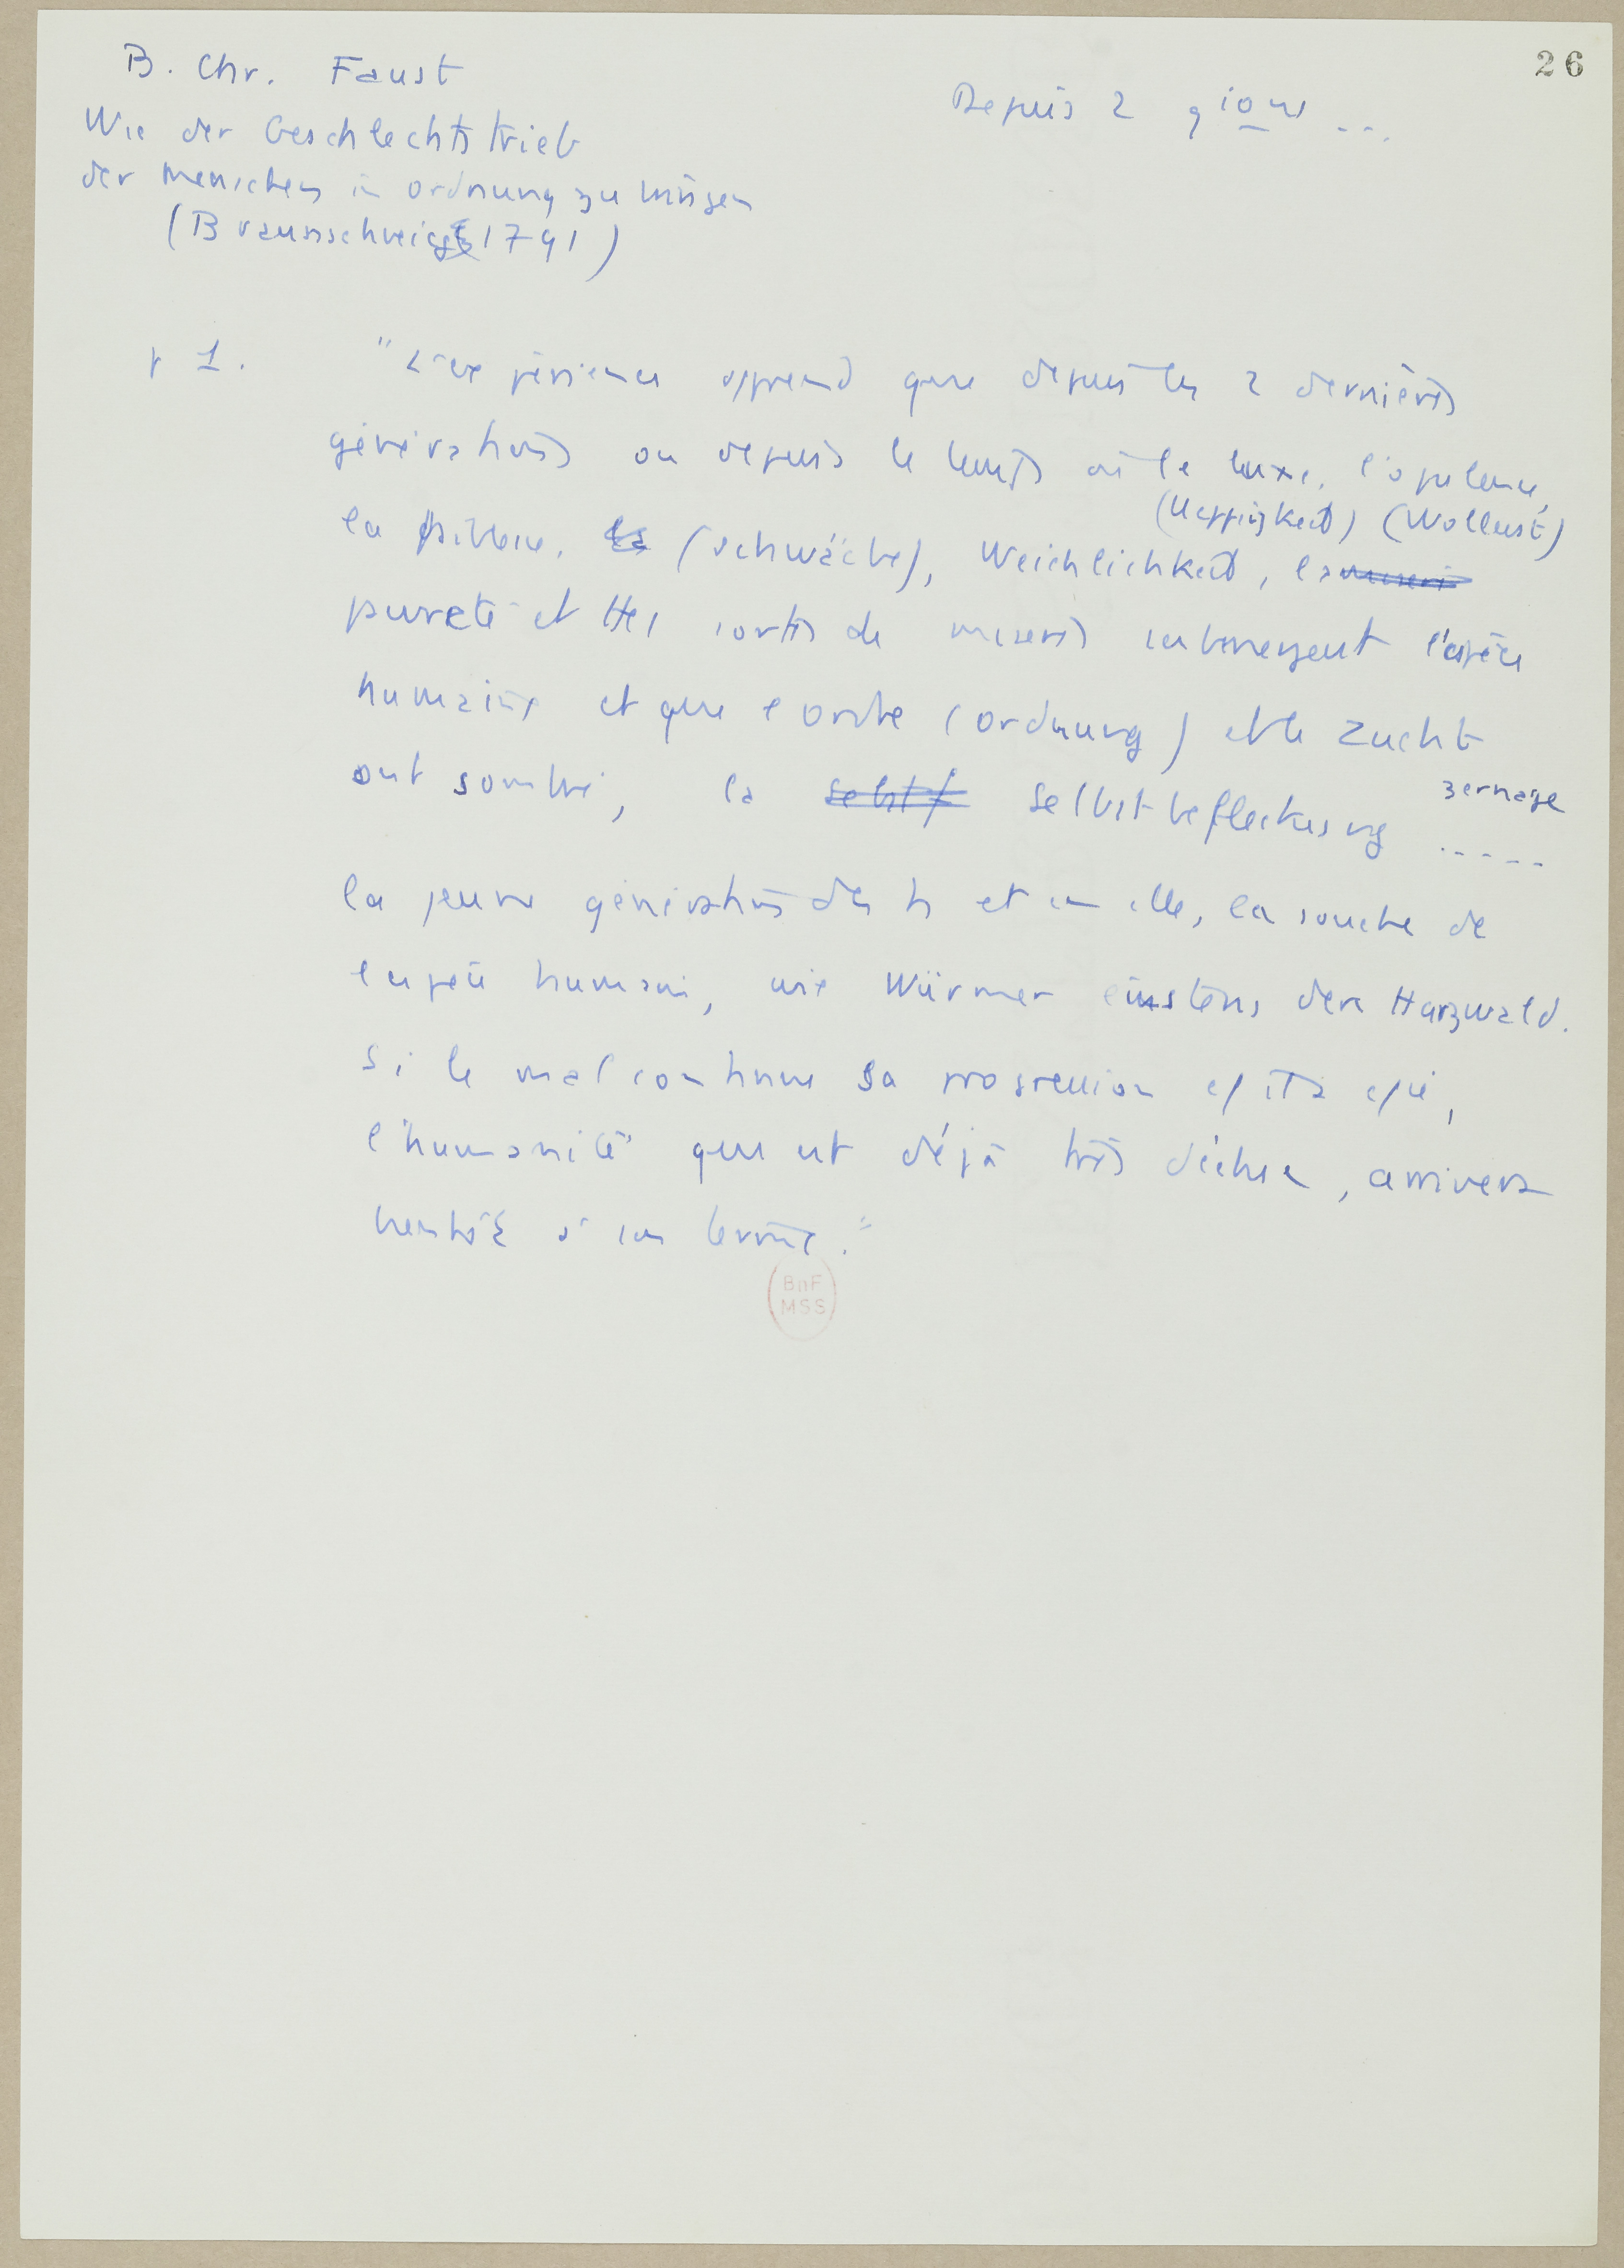 26
B. Chr. Faust
Depuis 2 gions ...
Wie der Geschlechtstrieb
der Menschen in Ordnung zu bringen
(Braunschweig 1791)
p 1. "L'expérience apprend que depuis les 2 dernières
générations ou depuis le temps où le luxe, l'opulence,
(Ueppigkeit) (Wollust)
la faiblesse, (schwäche), Weichlichkeit, la
pureté et ttes sortes de misères submergent l'espèce
humaine et que l'ordre (ordnung) et la Zucht
ont sombré, la Selbstbefleckung zernage
.....
la jeune génération des h et en elle, la souche de
l'espèce humaine, wie Würmer einstens den Harzwald.
Si le mal continue sa progression
l'humanité qui est déjà très déchue, arrivera
bientôt à son terme."
BnF
MSS